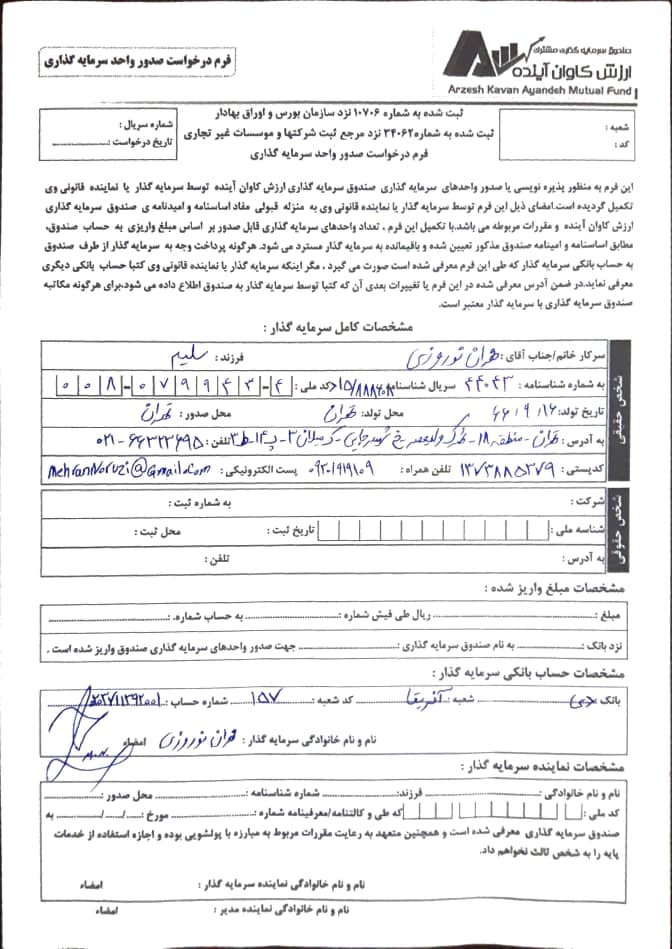 فرم درخواست صدور واحد سرمایه گذاری
صندوق سرمایه گذاری مشترک
ارزش کاوان آینده
Arzesh Kavan Ayandeh Mutual Fund
ثبت شده به شماره ۱۰۷۰۶ نزد سازمان بورس و اوراق بهادار
ثبت شده به شماره۳۴۰۶۲ نزد مرجع ثبت شرکتها و موسسات غیر تجاری
فرم درخواست صدور واحد سرمایه گذاری
شعبه :
کد :
شماره سریال :
تاریخ درخواست :
این فرم به منظور پذیره نویسی یا صدور واحدهای سرمایه گذاری صندوق سرمایه گذاری ارزش کاوان آینده توسط سرمایه گذار یا نماینده قانونی وی
تکمیل گردیده است.امضای ذیل این فرم توسط سرمایه گذار یا نماینده قانونی وی به منزله قبولی مفاد اساسنامه و امیدنامه ی صندوق سرمایه گذاری
ارزش کاوان آینده و مقررات مربوطه می باشد.با تکمیل این فرم ، تعداد واحدهای سرمایه گذاری قابل صدور بر اساس مبلغ واریزی به حساب صندوق،
مطابق اساسنامه و امینامه صندوق مذکور تعیین شده و باقیمانده به سرمایه گذار مسترد می شود. هرگونه پرداخت وجه به سرمایه گذار از طرف صندوق
به حساب بانکی سرمایه گذار که طی این فرم معرفی شده است صورت می گیرد ، مگر اینکه سرمایه گذار یا نماینده قانونی وی کتبا حساب بانکی دیگری
معرفی نماید.در ضمن آدرس معرفی شده در این فرم یا تغییرات بعدی آن که کتبا توسط سرمایه گذار به صندوق اطلاع داده می شود،برای هرگونه مکاتبه
صندوق سرمایه گذاری با سرمایه گذار معتبر است.
مشخصات کامل سرمایه گذار :
شخص حقیقی
سرکار خانم/جناب آقای : مهران نوروزی فرزند : سلیم
به شماره شناسنامه : ۴۴۰۴۳ سریال شناسنامه کد ملی : ۰۰۸-۰۷۹۹۴۳-۴
تاریخ تولد: ۶۶/۹/۱۶ محل تولد: تهران محل صدور : تهران
به آدرس : تهران - منطقه ۱۸ - شهرک ولیعصر - خ شهید رجایی - ک میلان ۳ - پ ۱۴ - ط ۳ تلفن : ۰۲۱-۶۶۳۲۳۶۹۵
کدپستی : ۱۳۷۳۸۸۵۳۷۹ تلفن همراه : ۰۹۳۰۱۹۱۹۱۰۹ پست الکترونیکی : MehranNoruzi@Gmail.com
شخص حقوقی
شرکت : به شماره ثبت :
شناسه ملی : تاریخ ثبت : محل ثبت :
به آدرس : تلفن :
مشخصات مبلغ واریز شده :
مبلغ : ریال طی فیش شماره : به حساب شماره :
نزد بانک : به نام صندوق سرمایه گذاری : جهت صدور واحدهای سرمایه گذاری صندوق واریز شده است .
مشخصات حساب بانکی سرمایه گذار :
بانک : دی شعبه : آفریقا کد شعبه : ۱۵۷ شماره حساب :
نام و نام خانوادگی سرمایه گذار : مهران نوروزی امضاء
M.N.
مشخصات نماینده سرمایه گذار :
نام و نام خانوادگی : فرزند: شماره شناسنامه : محل صدور :
کد ملی : که طی و کالتنامه/معرفینامه شماره : مورخ : / / به
صندوق سرمایه گذاری معرفی شده است و همچنین متعهد به رعایت مقررات مربوط به مبارزه با پولشویی بوده و اجازه استفاده از خدمات
پایه را به شخص ثالث نخواهم داد.
نام و نام خانوادگی نماینده سرمایه گذار : امضاء
نام و نام خانوادگی نماینده مدیر : امضاء